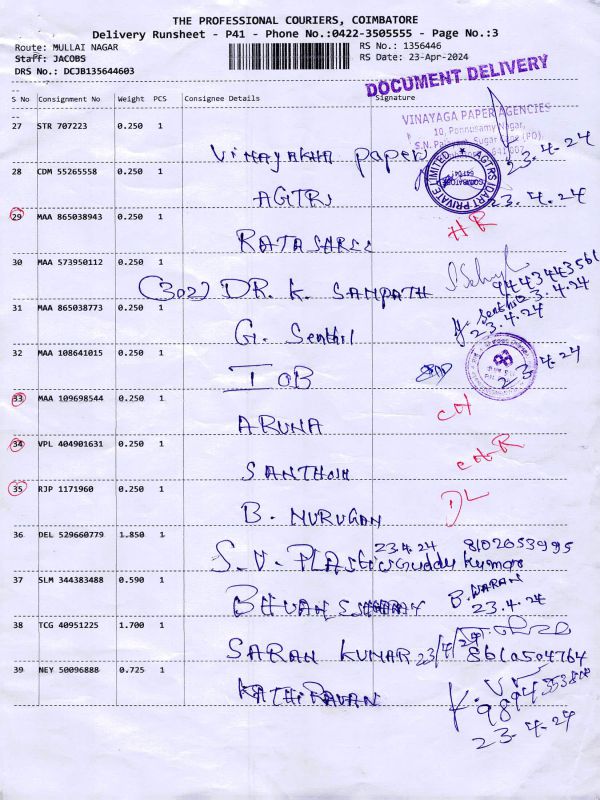 THE PROFESSIONAL COURIERS, COIMBATORE
Delivery Runsheet - P41 - Phone No.:0422-3505555 - Page No.:3
Route: MULLAI NAGAR RS No.: 1356446
Staff: JACOBS RS Date: 23-Apr-2024
DRS No.: DCJB135644603
DOCUMENT DELIVERY
S No Consignment No Weight PCS Consignee Details Signature
VINAYAGA PAPER AGENCIES
10, Ponnusamy Nagar,
27 STR 707223 0.250 1
Vinayakha paper 23.4.24
28 CDM 55265558 0.250 1
AGITRI 23.4.24
AGTRS DART PRIVATE LIMITED
COIMBATORE
29 MAA 865038943 0.250 1
HR
30 MAA 573950112 0.250 1
(302) DR. K. SAMPATH 9443443561
23.4.24
31 MAA 865038773 0.250 1
G. Senthil Senthil 23.4.24
32 MAA 108641015 0.250 1
IOB 23.4.24
33 MAA 109698544 0.250 1
ARUNA CH
34 VPL 404901631 0.250 1
SANTHOSH
35 RJP 1171960 0.250 1
B. MURUGAN DL
36 DEL 529660779 1.850 1
S.V. PLAstics 23.4.24 8102653995
Guddu Kumar
37 SLM 344383488 0.590 1
23.4.24
38 TCG 40951225 1.700 1
SARAN KUMAR 23/4/24 8610504764
39 NEY 50096888 0.725 1
KATHIRAVAN
23.4.24